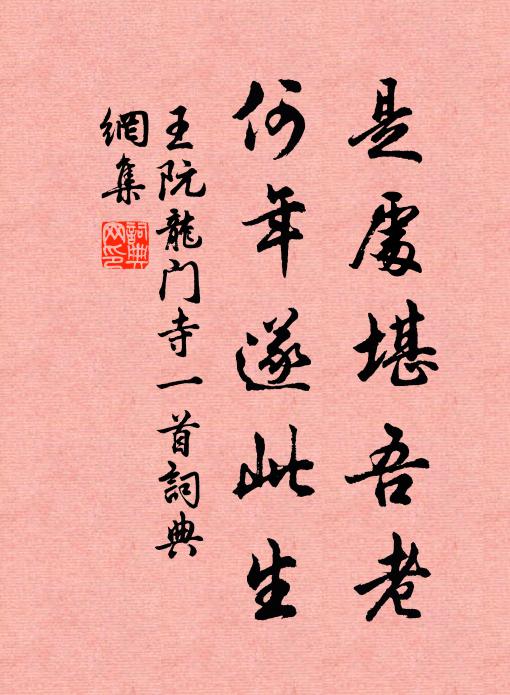 是處堪吾老
何年遂此生
王阮龍门寺一首詞典
網集
詞典
网印